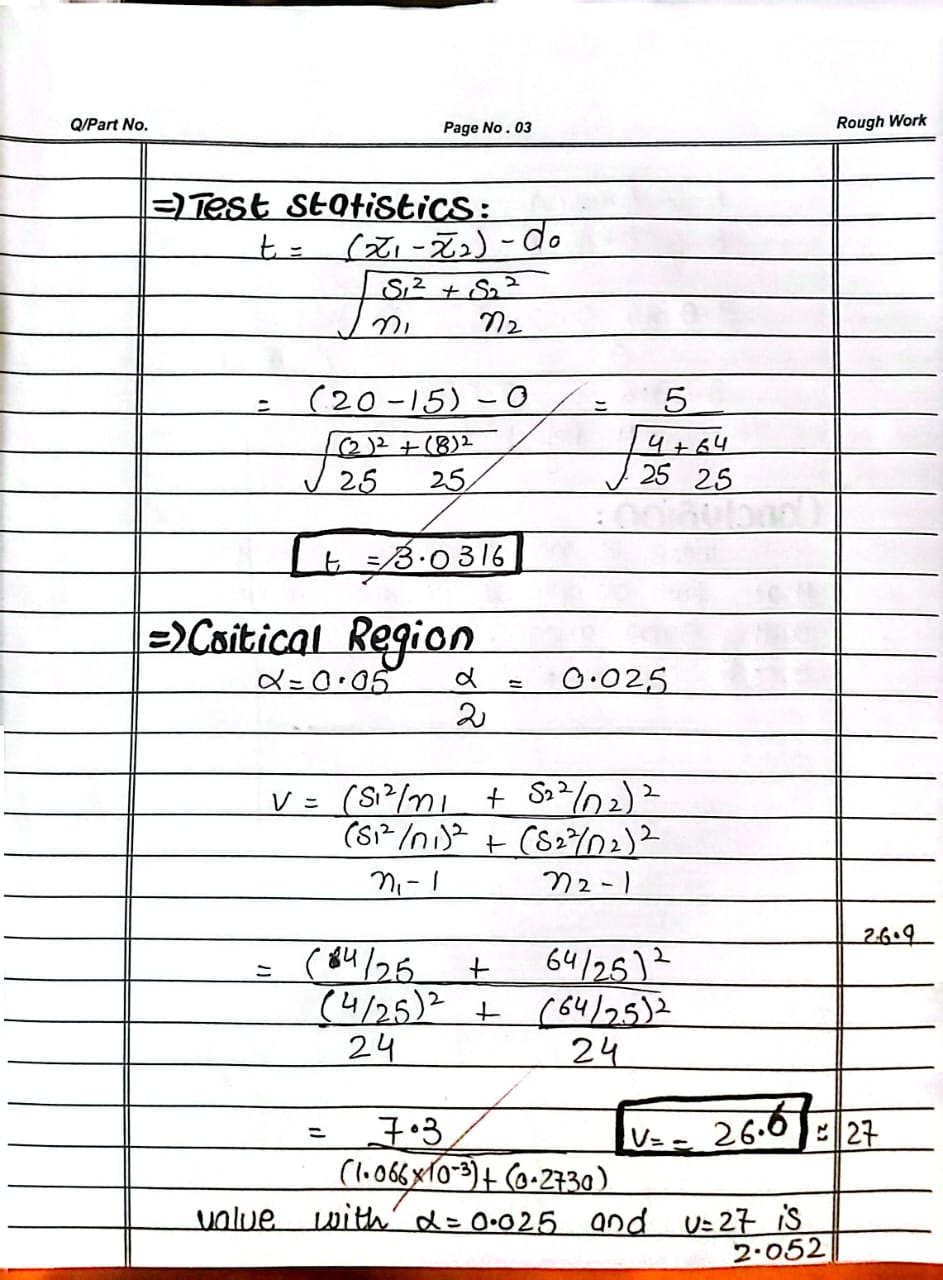 Q/Part No. Page No. 03 Rough Work
=> Test statistics:
t = (x̄₁ - x̄₂) - do
√ S₁² + S₂²
n₁ n₂
= (20 - 15) - 0 = 5
√ (2)² + (8)² √ 4 + 64
25 25 25 25
t = 3.0316
=> Critical Region
α = 0.05 α = 0.025
2
V = (S₁²/n₁ + S₂²/n₂)²
(S₁²/n₁)² + (S₂²/n₂)²
n₁ - 1 n₂ - 1
26.9
= (4/25 + 64/25)²
(4/25)² + (64/25)²
24 24
= 7.3 V = = 26.6 ≈ 27
(1.066 x 10⁻³) + (0.2730)
value with α = 0.025 and v = 27 is
2.052